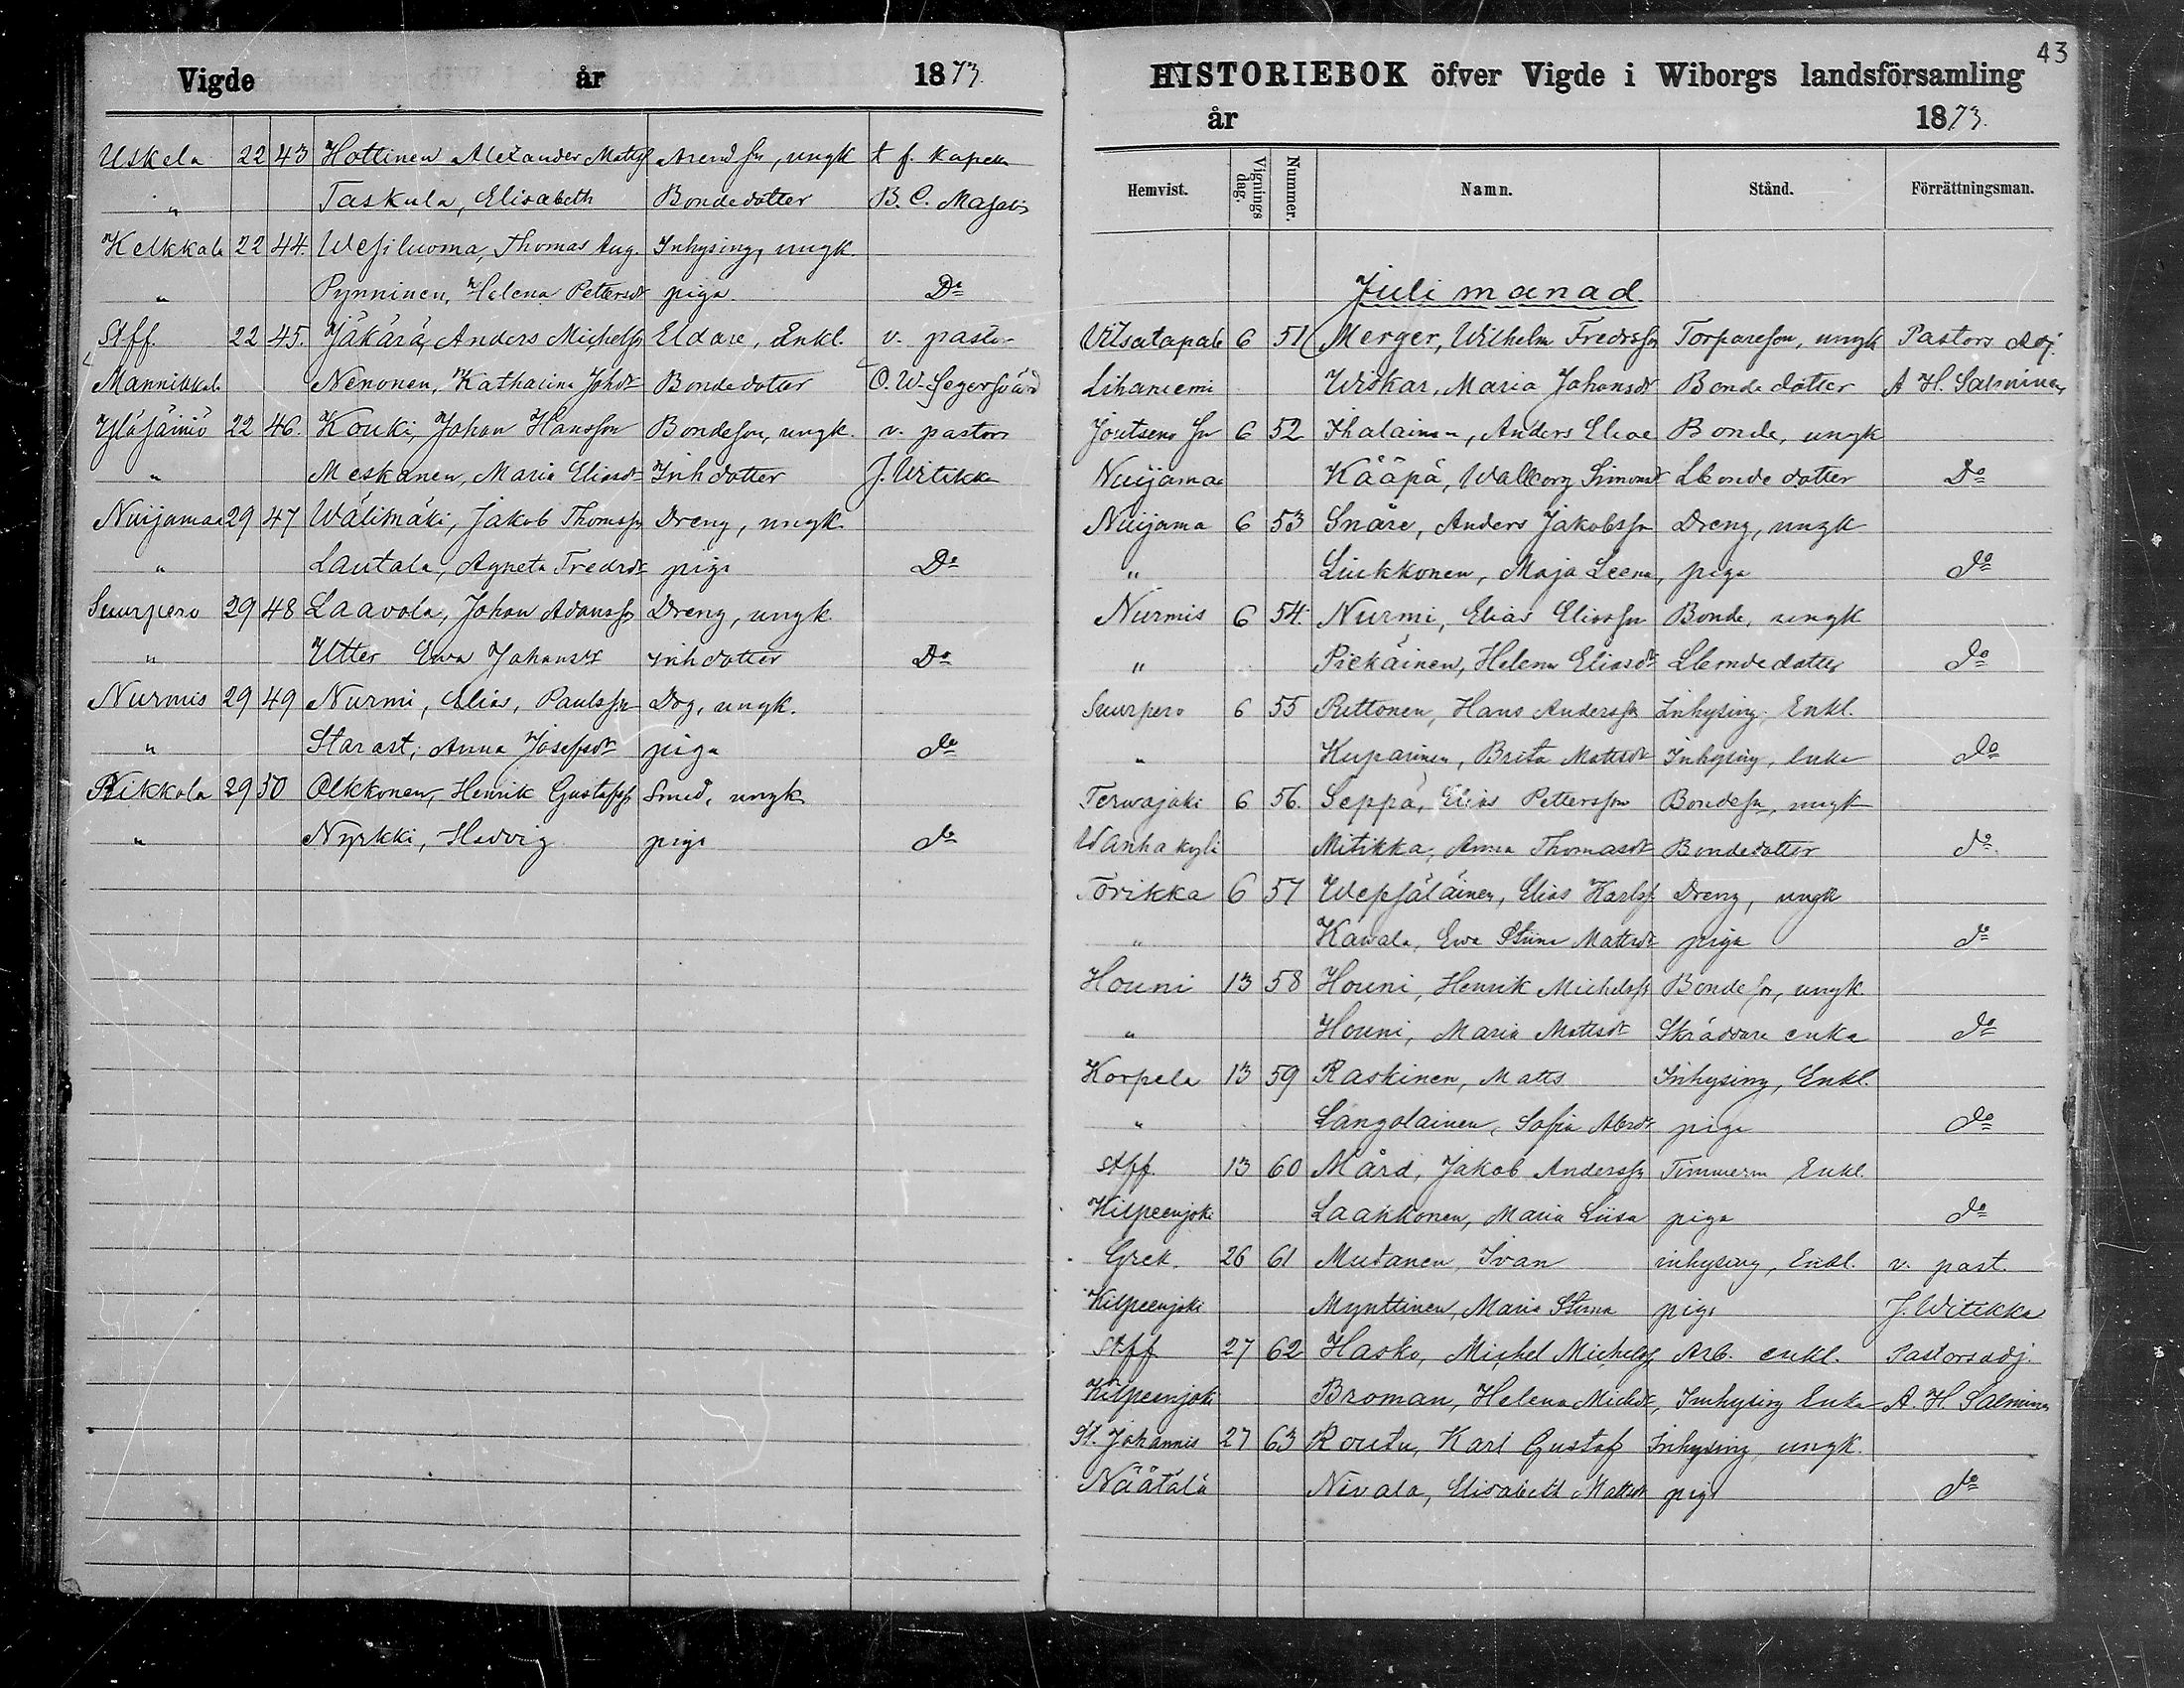 Vigde år 1873.
Uskela 22 43 Hottinen Alexander Mattss Arend sn, ungk t. f. kapell
" Taskula, Elisabeth Bondedotter B. C.
Kelkkala 22 44. Wesiluoma, Thomas Aug. Inhysing, ungk.
" Pynninen, Helena Pettersdr piga. Do
St ff. 22 45. Jäkärä, Anders Michelss Eldare, Enkl. v. pastor
Mannikkala Nenonen, Katharina Johdr Bondedotter O. W. Segersvärd
Yläsäiniö 22 46. Kouki, Johan Hansson Bondeson, ungk. v. pastor
" Meskanen, Maria Eliasdr Inhdotter J. Witikka
Nuijamaa 29 47 Wälimäki, Jakob Thomass Dreng, ungk.
" Lautala, Agneta Fredrdr piga Do
Suurpero 29 48 Laavola, Johan Adamss Dreng, ungk.
" Utter Ewa Johansdr inhdotter Do
Nurmis 29 49 Nurmi, Elias, Paulsson Drg, ungk.
" Starast, Anna Josefsdr piga do
Rikkola 29 50 Olkkonen, Henrik Gustafss Smed, ungk.
" Nyrkki, Hedvig piga do
43
HISTORIEBOK öfver Vigde i Wiborgs landsförsamling
år 1873.
Hemvist. Vignings dag. Nummer. Namn. Stånd. Förrättningsman.
Juli månad.
Vilsatapale 6 51 Merger, Wilhelm Fredrsson Torpareson, ungk Pastors Adj.
Lihaniemi Wiskar, Maria Johansdr Bondedotter A H. Salminen
Joutseno Sn 6 52 Ihalainen, Anders Eliae Bonde, ungk
Nuijamaa Kääpä, Walborg Simonsdr Bondedotter Do
Nuijama 6 53 Snäre, Anders Jakobsson Dreng, ungk
" Liukkonen, Maja Leena, piga do
Nurmis 6 54. Nurmi, Elias Eliasson Bonde, ungk
" Piekäinen, Helena Eliasdr Bondedotter do
Suurpero 6 55 Rittonen, Hans Andersson Inhysing, Enkl.
" Kuparinen, Brita Mattsdr Inhysing, Enka do
Terwajoki 6 56. Seppä, Elias Pettersson Bondesn, ungk
Wanhakylä Mitikka, Anna Thomasdr Bondedotter do
Torikka 6 57 Wepsäläinen, Elias Karlss Dreng, ungk
" Kawala, Ewa Stiina Mattsdr piga do
Houni 13 58 Houni, Henrik Michelss Bondeson, ungk.
" Houni, Maria Mattsdr Skräddare enka do
Korpela 13 59 Raskinen, Matts Inhysing, Enkl.
" Langolainen, Sofia Abrdr piga do
St ff 13 60 Mård, Jakob Andersson Timmerm Enkl.
Kilpeenjoki Laakkonen, Maria Liisa piga do
Grek. 26 61 Mutanen, Ivan inhysing, Enkl. v. past.
Kilpeenjoki Mynttinen, Maria Stiina piga J. Witikka
St ff 27 62 Hasko, Michel Michelss Arb. enkl. Pastorsadj.
Kilpeenjoki Broman, Helena Michdr, Inhysing Enka A. H. Salminen
St. Johannis 27 63 Routu, Karl Gustaf Inhysing, ungk.
Näätälä Nivala, Elisabeth Mattsdr piga do